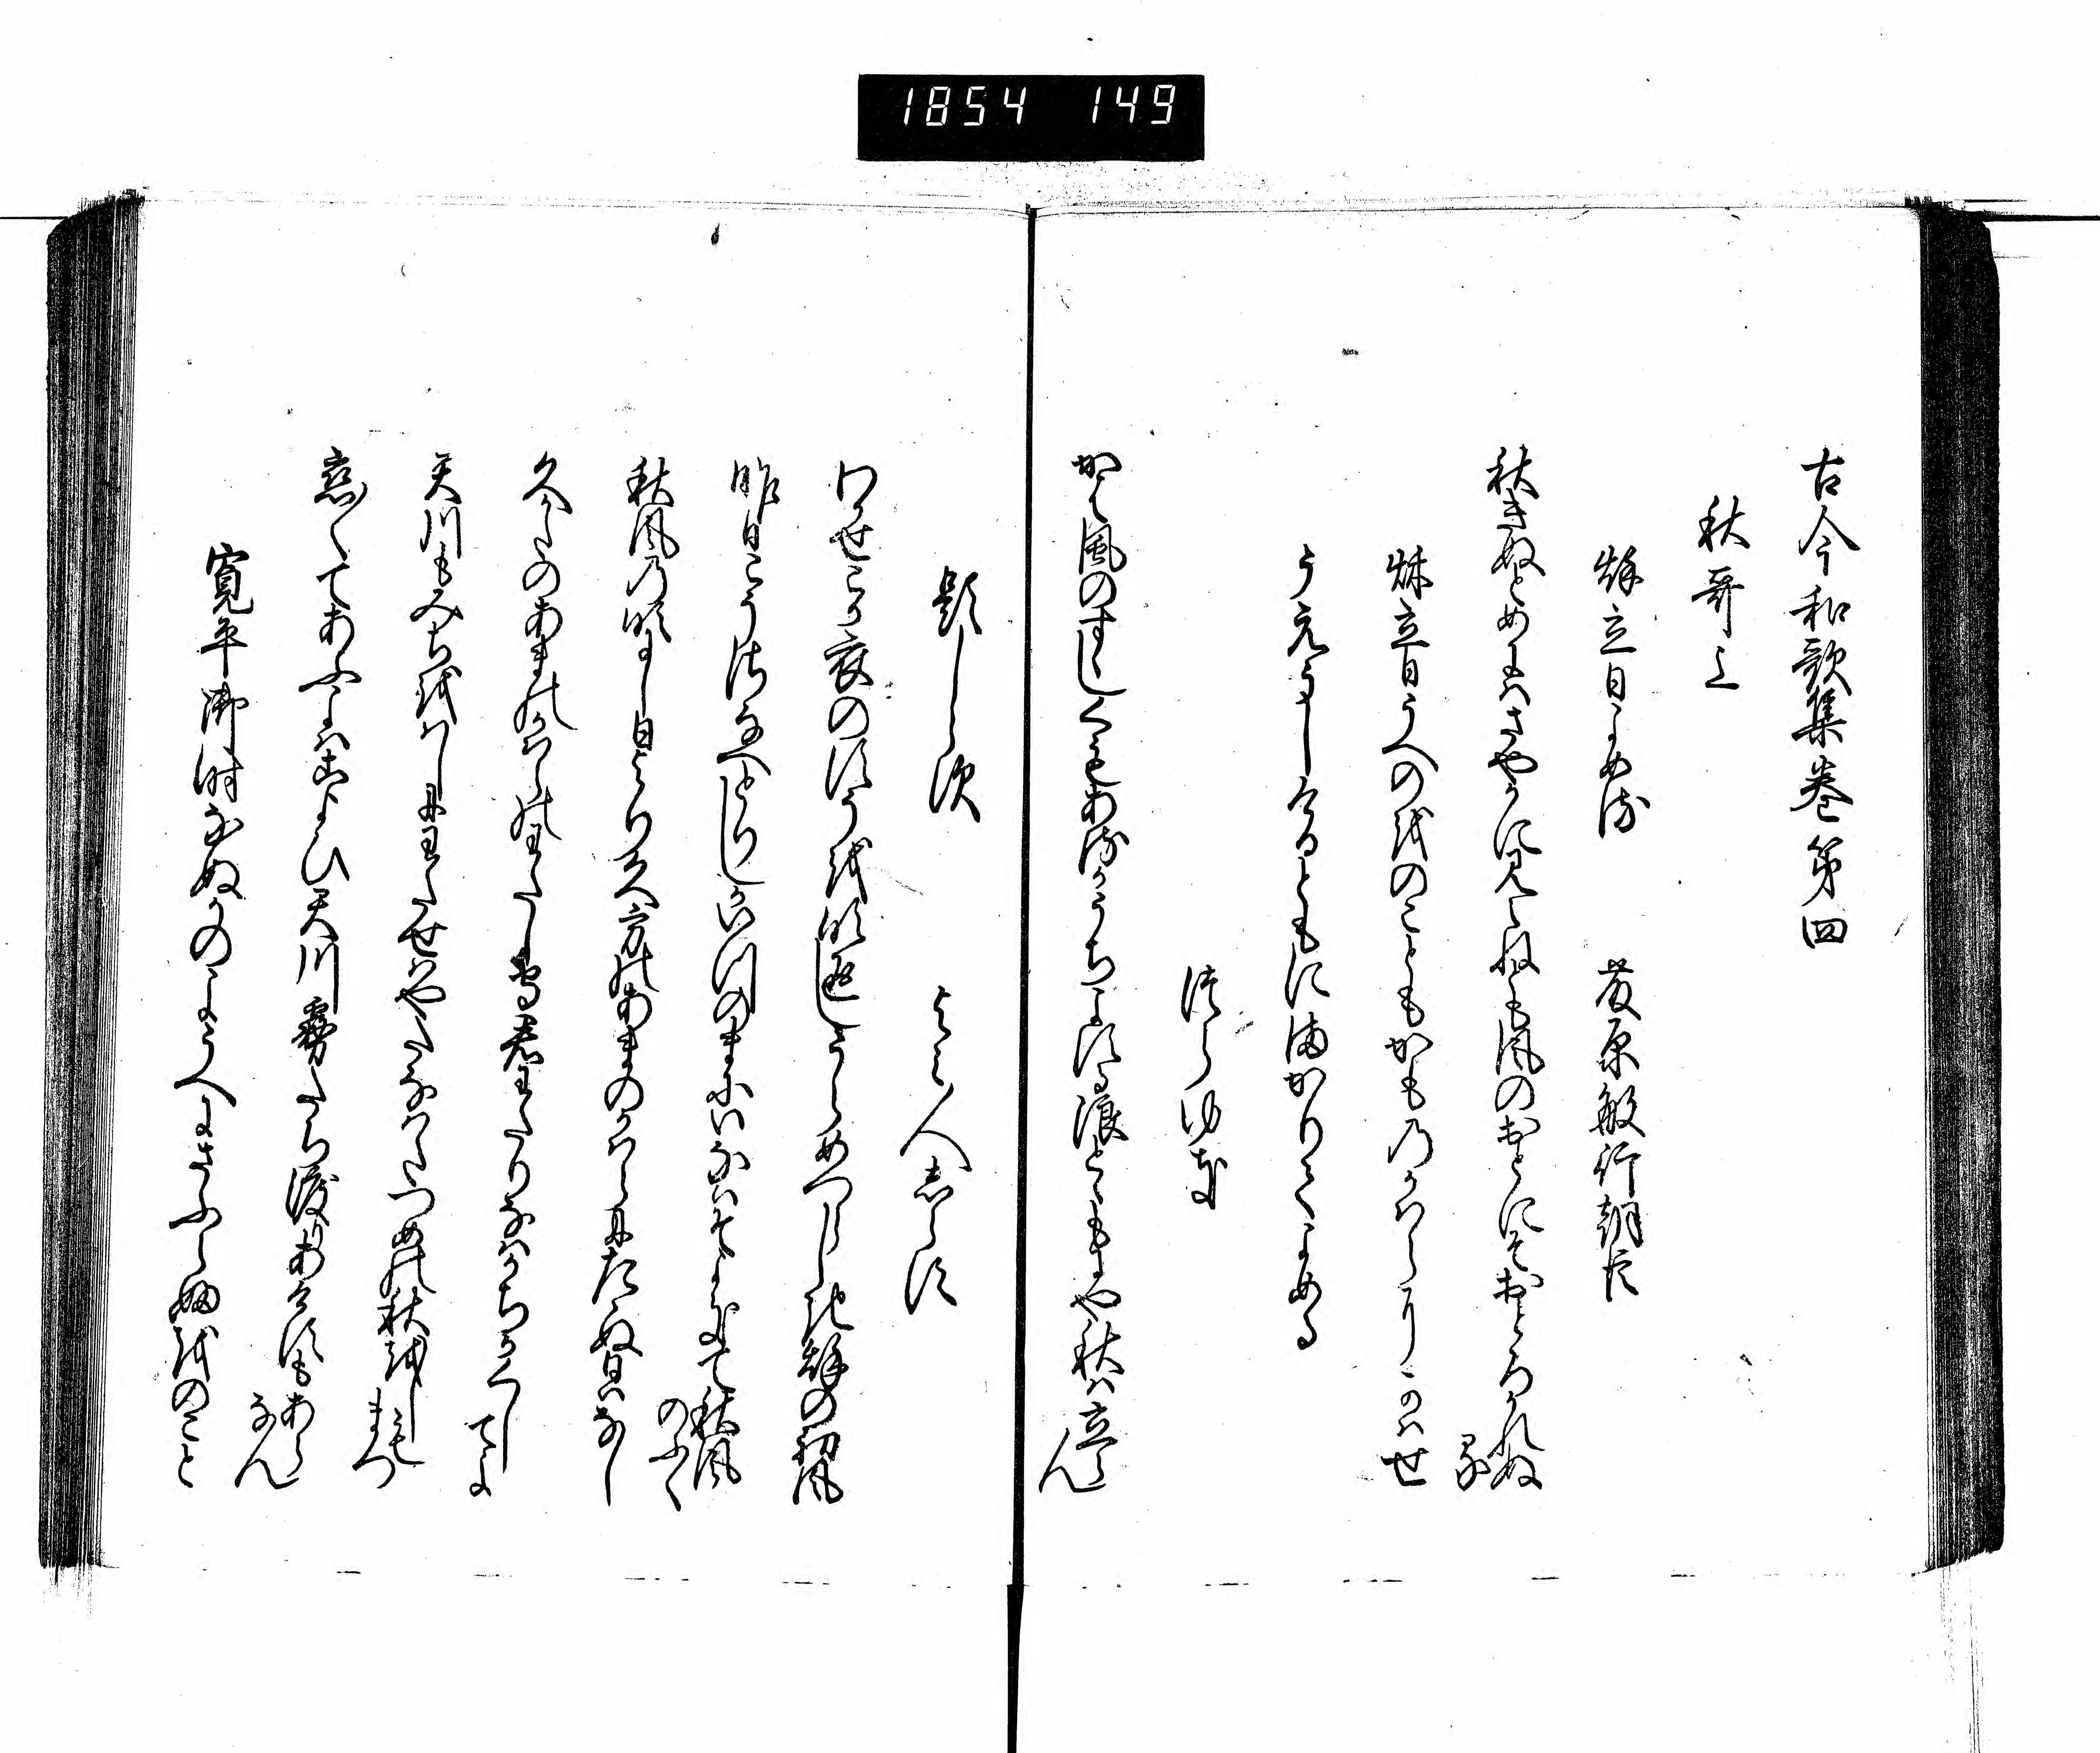 1854 149
古今和歌集巻第四
秋哥上
穐立日よめる
藤原敏行朝臣
秋きぬとめにはさやかに見えねとも風のおとにそおとろかれぬ
る
秋立日うへのをのこともかものかはらにかはせ
うえうしけるともにまかりてよめる
つらゆき
かは風のすゝしくもあるかうちよする浪とゝもにや秋は立ら
ん
題しらす
よみ人しらす
わかせこか衣のすそを吹返しうらめつらしき穐の初風
昨日こそさなへとりしかいつのまにいなはそよきて秋風
のふく
秋風の吹にし日より久方のあまのかはらにたゝぬ日はなし
久かたのあまのかはらのわたしもり君わたりなはかちかくし
てよ
天川もみちをはしにわたせはやたなはたつめの秋をしも
まつ
恋〳〵てあふよはこよひ天川霧たち渡りあけすもあら
なん
寛平御時なぬかのようへにさふらふをのこと